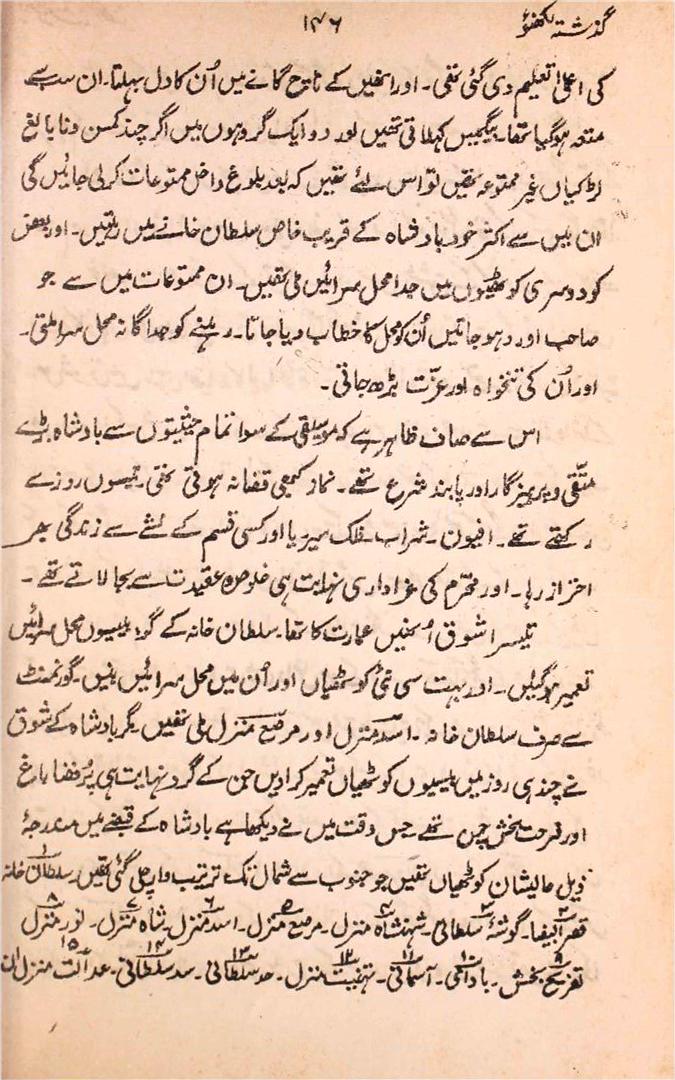 گذشتہ لکھنؤ
۱۴۶
کی اعلیٰ تعلیم دی گئی تھی۔ اور انھیں کے ناچ گانے میں اُن کا دل بہلتا۔ ان سب سے
متعہ ہو گیا تھا۔ بیگمیں کہلاتی تھیں اور دو ایک گروہوں میں اگر چند کمسن و نابالغ
لڑکیاں غیر ممتوعہ تھیں تو اس لئے تھیں کہ بعد بلوغ داخل ممتوعات کر لی جائیں گی
ان میں سے اکثر خود بادشاہ کے قریب خاص سلطان خانے میں رہتیں۔ اور بعض
کو دوسری کوٹھیوں میں جدا محل سرائیں ملی تھیں۔ ان ممتوعات میں سے جو
صاحب اولاد ہو جاتیں اُن کو محل کا خطاب دیا جاتا۔ رہنے کو جداگانہ محل سرا ملتی۔
اور اُن کی تنخواہ اور عزت بڑھ جاتی۔
اس سے صاف ظاہر ہے کہ موسیقی کے سوا تمام حیثیتوں سے بادشاہ بڑے
متقی و پرہیزگار اور پابند شرع تھے۔ نماز کبھی قضا نہ ہوتی تھی۔ تیسوں روزے
رکھتے تھے۔ افیون۔ شراب۔ فلک سیر یا اور کسی قسم کے نشے سے زندگی بھر
احتراز رہا۔ اور محرّم کی عزاداری نہایت ہی خلوص عقیدت سے بجا لاتے تھے۔
تیسرا شوق اُنھیں عمارت کا تھا۔ سلطان خانہ کے گرد بیسیوں محل سرائیں
تعمیر ہو گئیں۔ اور بہت سی نئی کوٹھیاں اور اُن میں محل سرائیں بنیں۔ گورنمنٹ
سے صرف سلطان خانہ۔ اسد منزل اور مرصع منزل ملی تھیں۔ مگر بادشاہ کے شوق
نے چند ہی روز میں بیسیوں کوٹھیاں تعمیر کرا دیں جن کے گرد نہایت ہی پُر فضا باغ
اور فرحت بخش چمن تھے۔ جس وقت میں نے دیکھا ہے بادشاہ کے قبضے میں مندرجۂ
ذیل عالیشان کوٹھیاں تھیں جو جنوب سے شمال تک ترتیب وار چلی گئی تھیں۔ سلطان خانہ
قصر البیضا۔ گوشۂ سلطانی۔ شہنشاہ منزل۔ مرصع منزل۔ اسد منزل۔ شاہ منزل۔ نور منزل
تفریح بخش۔ بادامی۔ آسمانی۔ تہنیت منزل۔ حد سلطانی۔ سد سلطانی۔ عدالت منزل ان